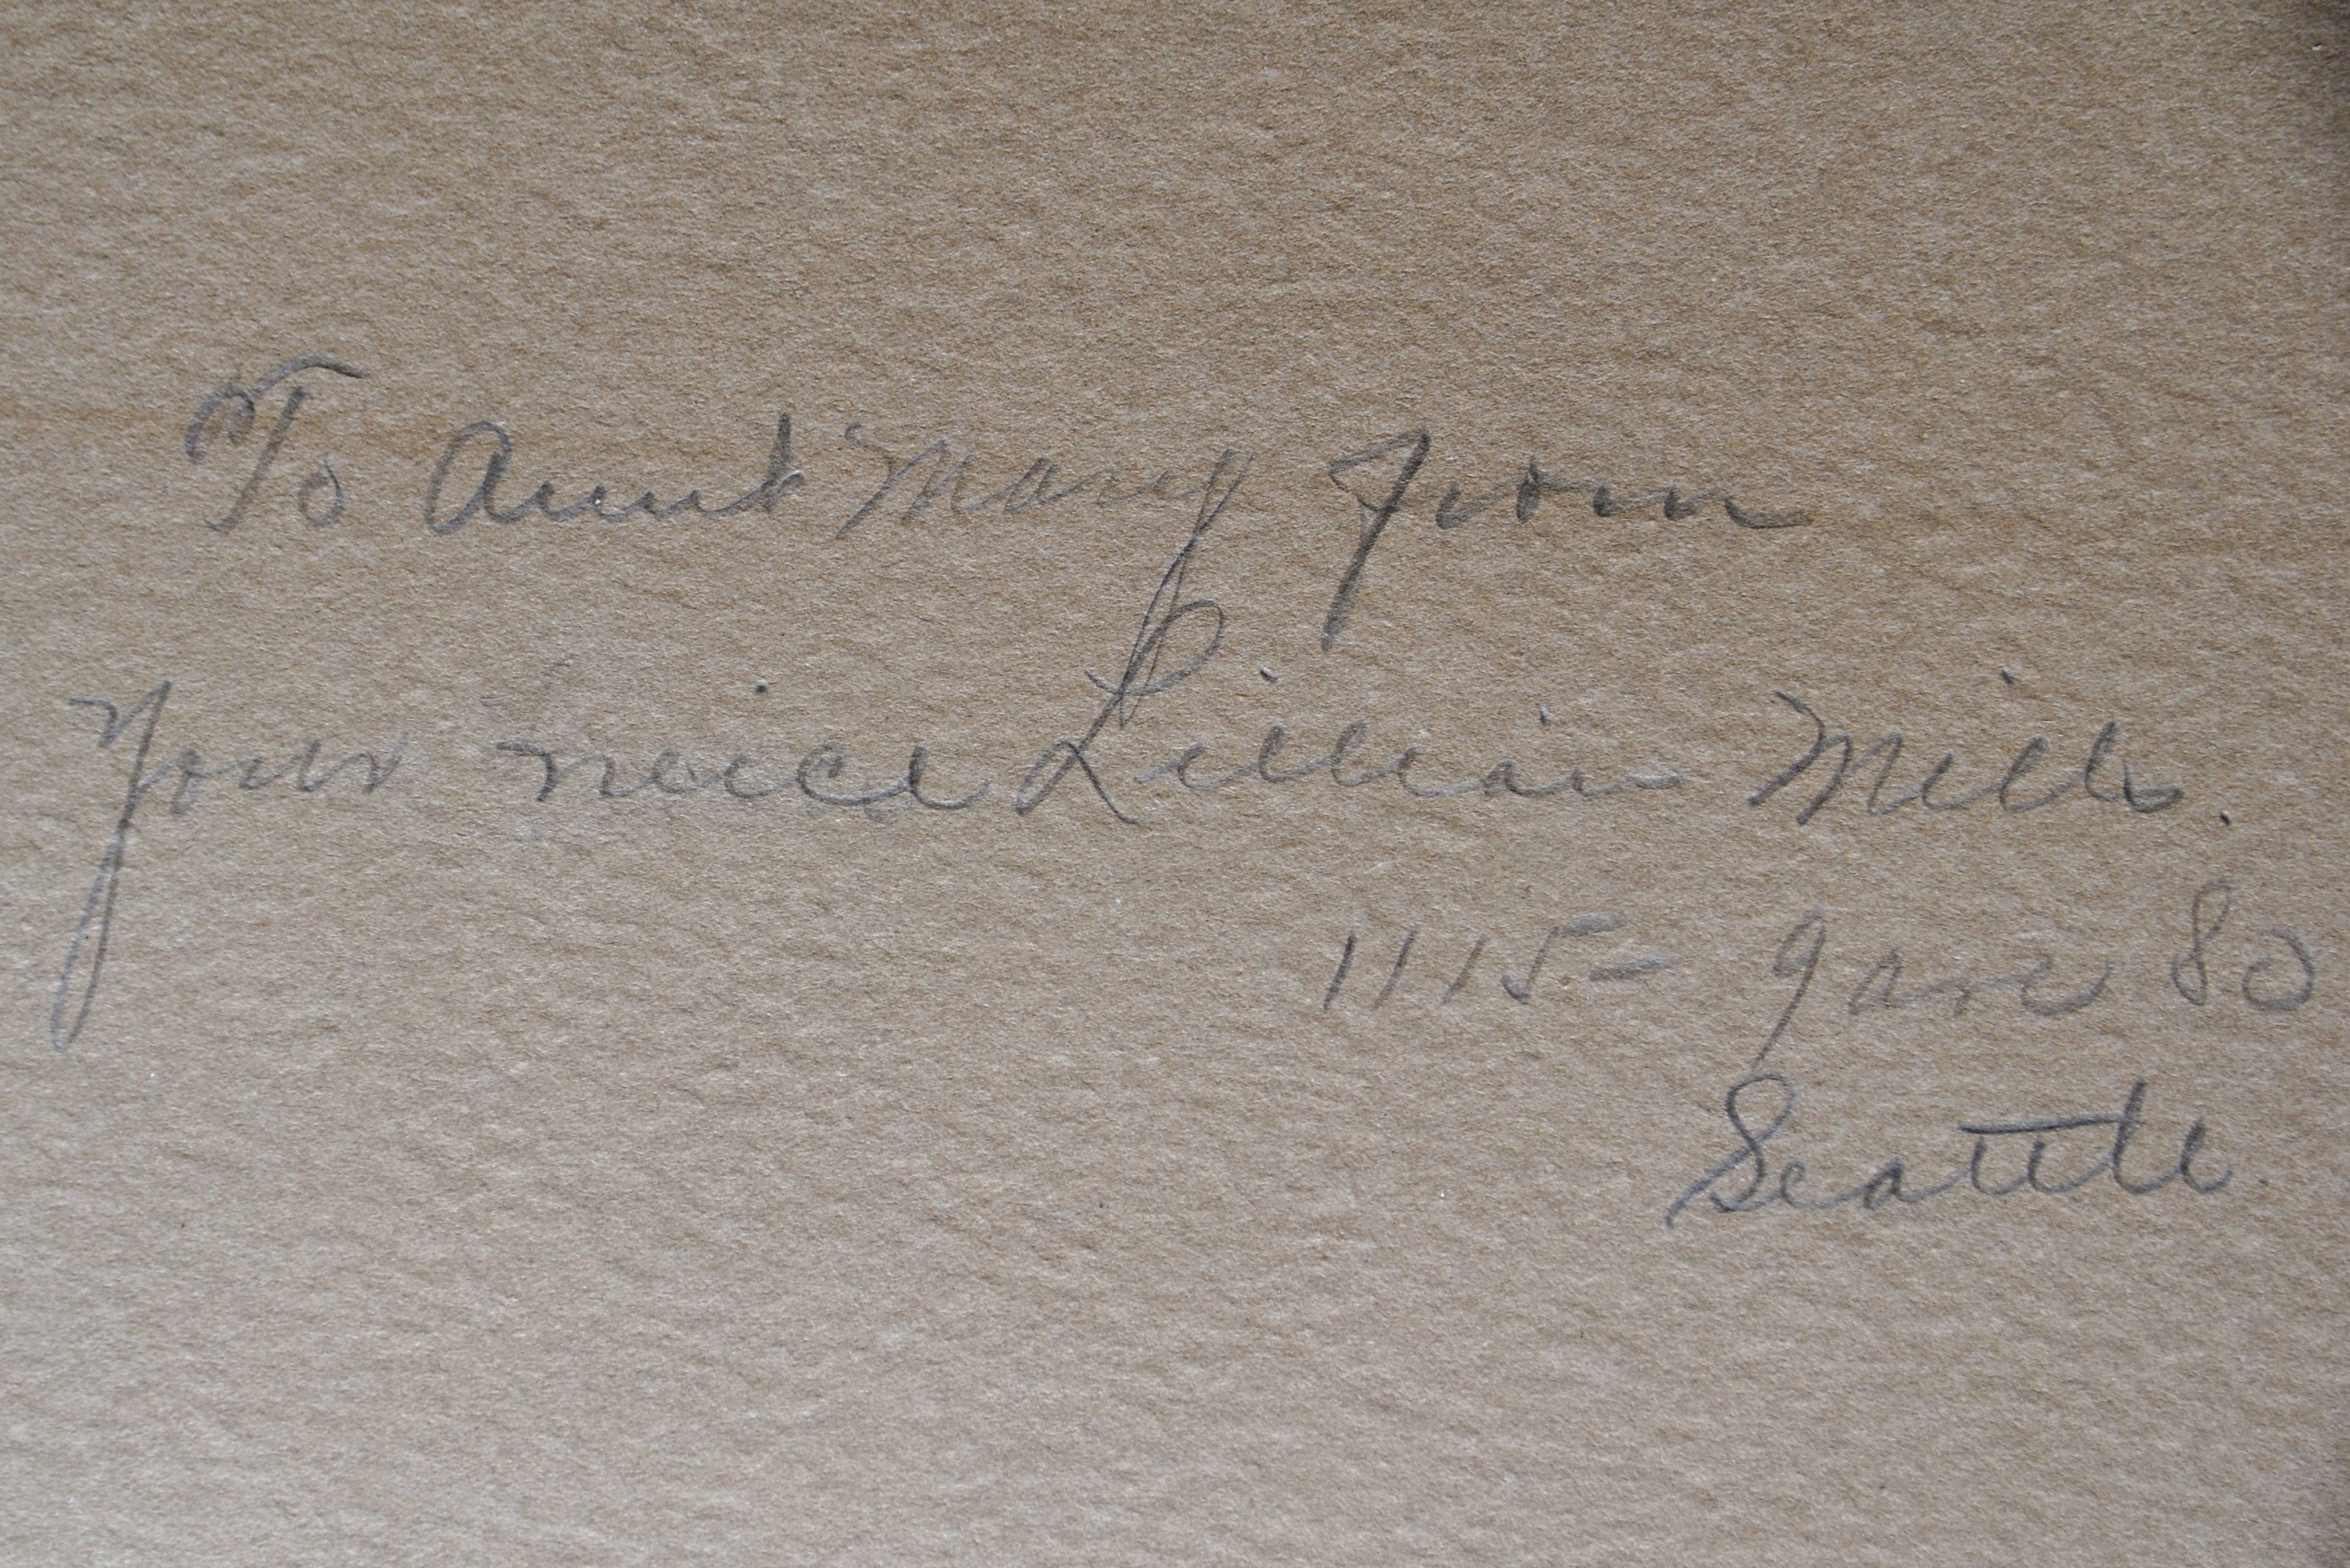 To Aunt Mary from
Your neice Lillian Mills.
1115 - 9 ave So
Seattle.